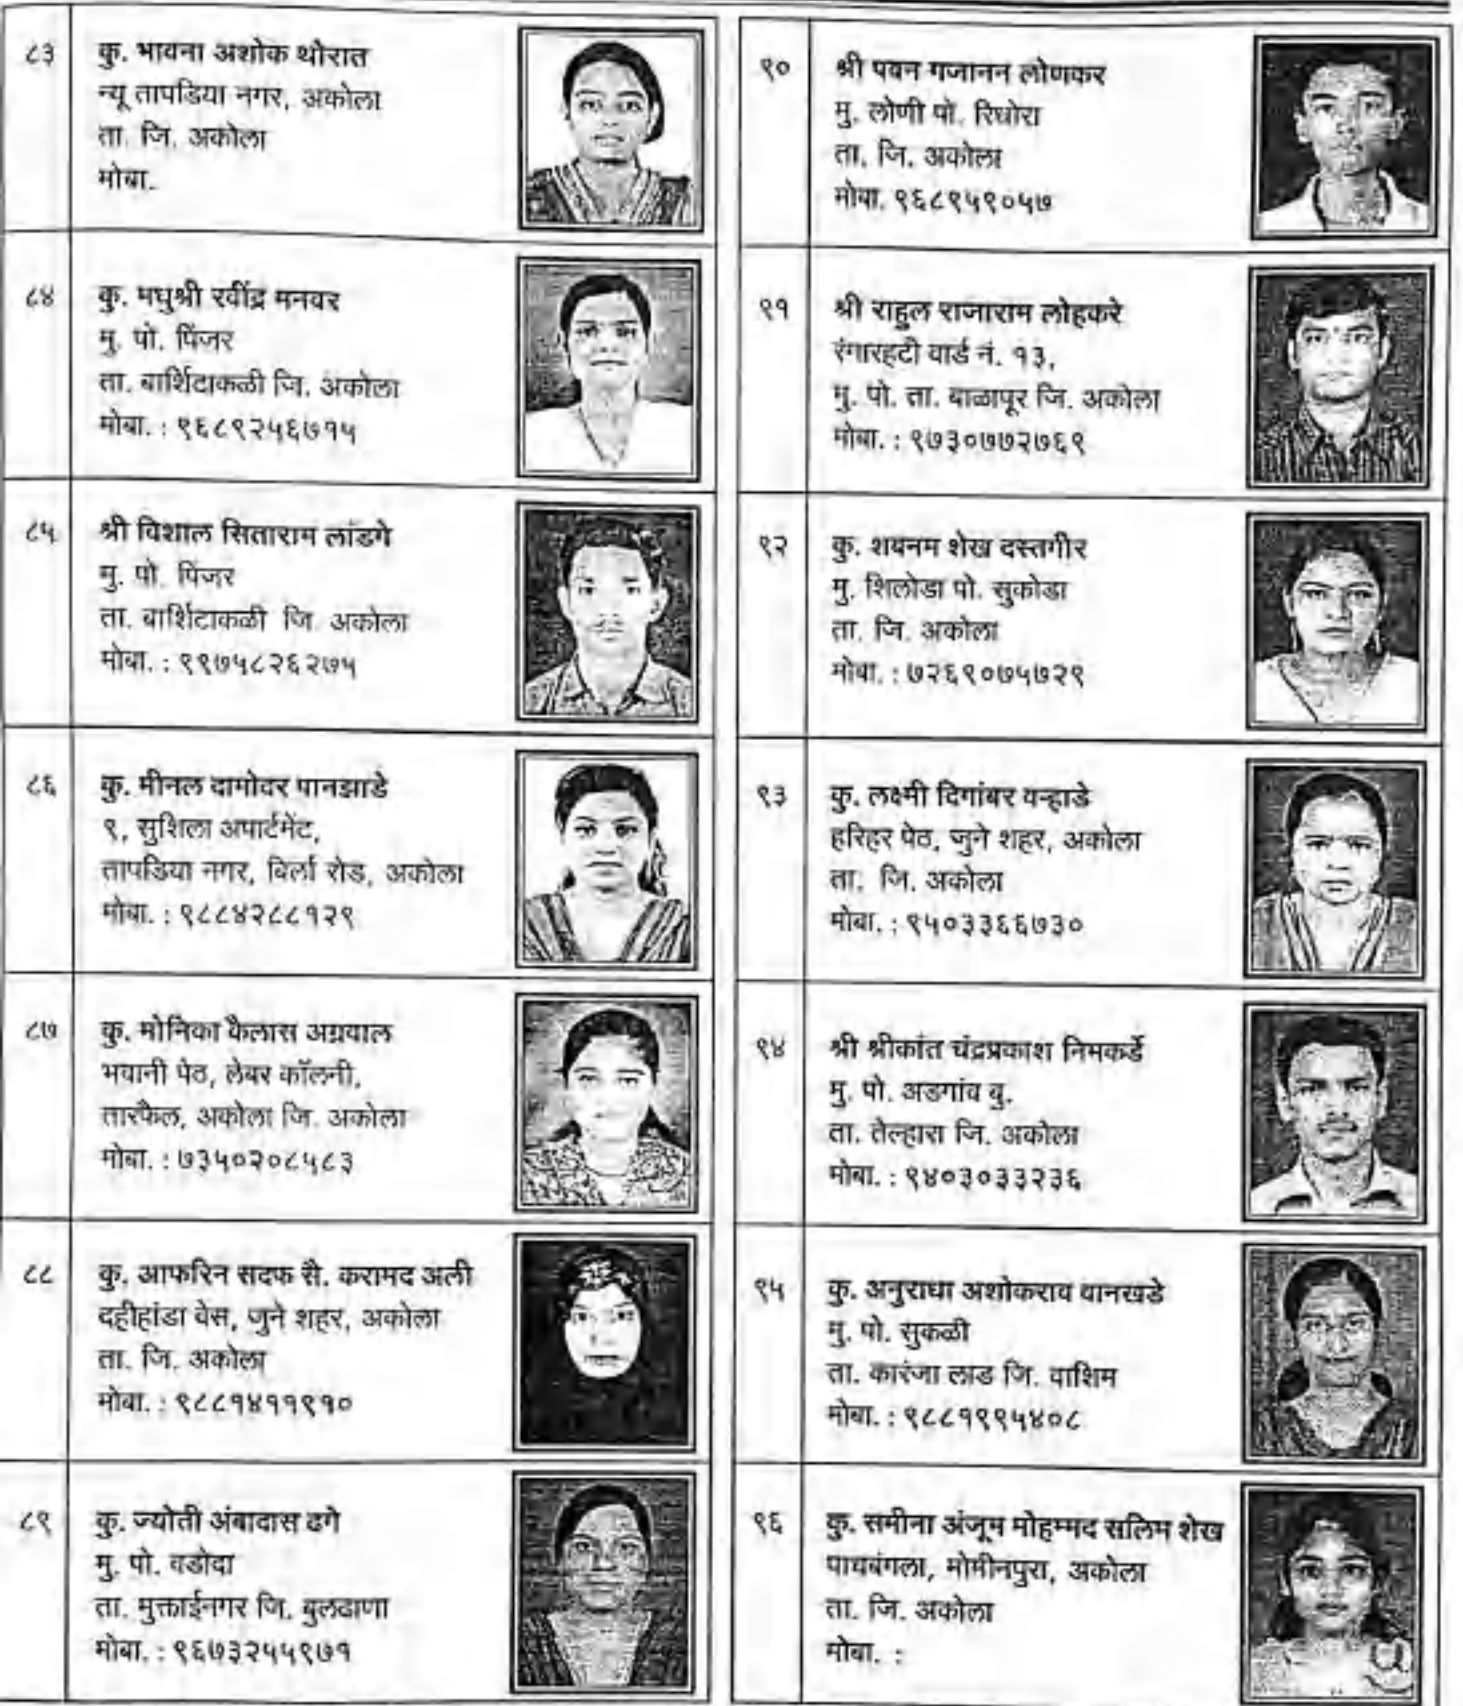 ८३
कु. भावना अशोक थोरात
न्यू तापडिया नगर, अकोला
ता. जि. अकोला
मोबा.
८४
कु. मधुश्री रवींद्र मनवर
मु. पो. पिंजर
ता. बार्शिटाकळी जि. अकोला
मोबा. : ९६८९२५६७१५
८५
श्री विशाल सिताराम लांडगे
मु. पो. पिंजर
ता. बार्शिटाकळी जि. अकोला
मोबा. : ९९७५८२६२७५
८६
कु. मीनल दामोदर पानझाडे
९, सुशिला अपार्टमेंट,
तापडिया नगर, बिर्ला रोड, अकोला
मोबा. : ९८८४२८८१२९
८७
कु. मोनिका कैलास अग्रवाल
भवानी पेठ, लेबर कॉलनी,
तारफैल, अकोला जि. अकोला
मोबा. : ७३५०२०८५८३
८८
कु. आफरिन सदफ सै. करामद अली
दहीहांडा वेस, जुने शहर, अकोला
ता. जि. अकोला
मोबा. : ९८८१४११९१०
८९
कु. ज्योती अंबादास ढगे
मु. पो. वडोदा
ता. मुक्ताईनगर जि. बुलढाणा
मोबा. : ९६७३२५५९७१
९०
श्री पवन गजानन लोणकर
मु. लोणी पो. रिधोरा
ता. जि. अकोला
मोबा. ९६८९५९०५७
९१
श्री राहुल राजाराम लोहकरे
रंगारहटी वार्ड नं. १३,
मु. पो. ता. बाळापूर जि. अकोला
मोबा. : ९७३०७७२७६९
९२
कु. शबनम शेख दस्तगीर
मु. शिलोडा पो. सुकोडा
ता. जि. अकोला
मोबा. : ७२६९०७५७२९
९३
कु. लक्ष्मी दिगांबर वऱ्हाडे
हरिहर पेठ, जुने शहर, अकोला
ता. जि. अकोला
मोबा. : ९५०३३६६७३०
९४
श्री श्रीकांत चंद्रप्रकाश निमकर्डे
मु. पो. अडगांव बु.
ता. तेल्हारा जि. अकोला
मोबा. : ९४०३०३३२३६
९५
कु. अनुराधा अशोकराव वानखडे
मु. पो. सुकळी
ता. कारंजा लाड जि. वाशिम
मोबा. : ९८८१९९५४०८
९६
कु. समीना अंजूम मोहम्मद सलिम शेख
पाचबंगला, मोमीनपुरा, अकोला
ता. जि. अकोला
मोबा. :